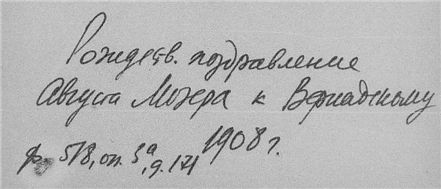 Рождеств. поздравление
Августа Мозера к Вернадскому
ф. 518, оп. 3а, д. 121 1908 г.